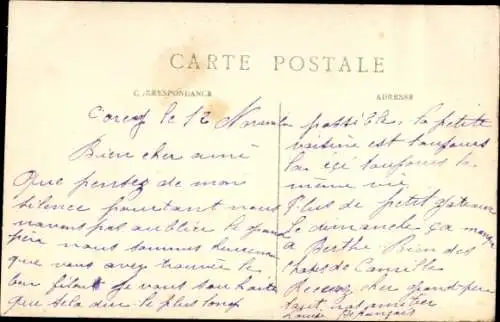 CARTE POSTALE
CORRESPONDANCE
ADRESSE
le 12 Novembre
Bien cher ami
Que pensez de mon
silence pourtant nous
navons pas oublier le gran
père nous sommes
que vous avez trouvée le
leur nous vous souhaite
que sela dure le plus long
possible, la petite
voitine est toujours
la toujours la
même vie
Plus de petit gateau
Le dimanche ça
a Berthe Bien des
choses de Camille
Recevez cher grand-père
nos amitier
Louise